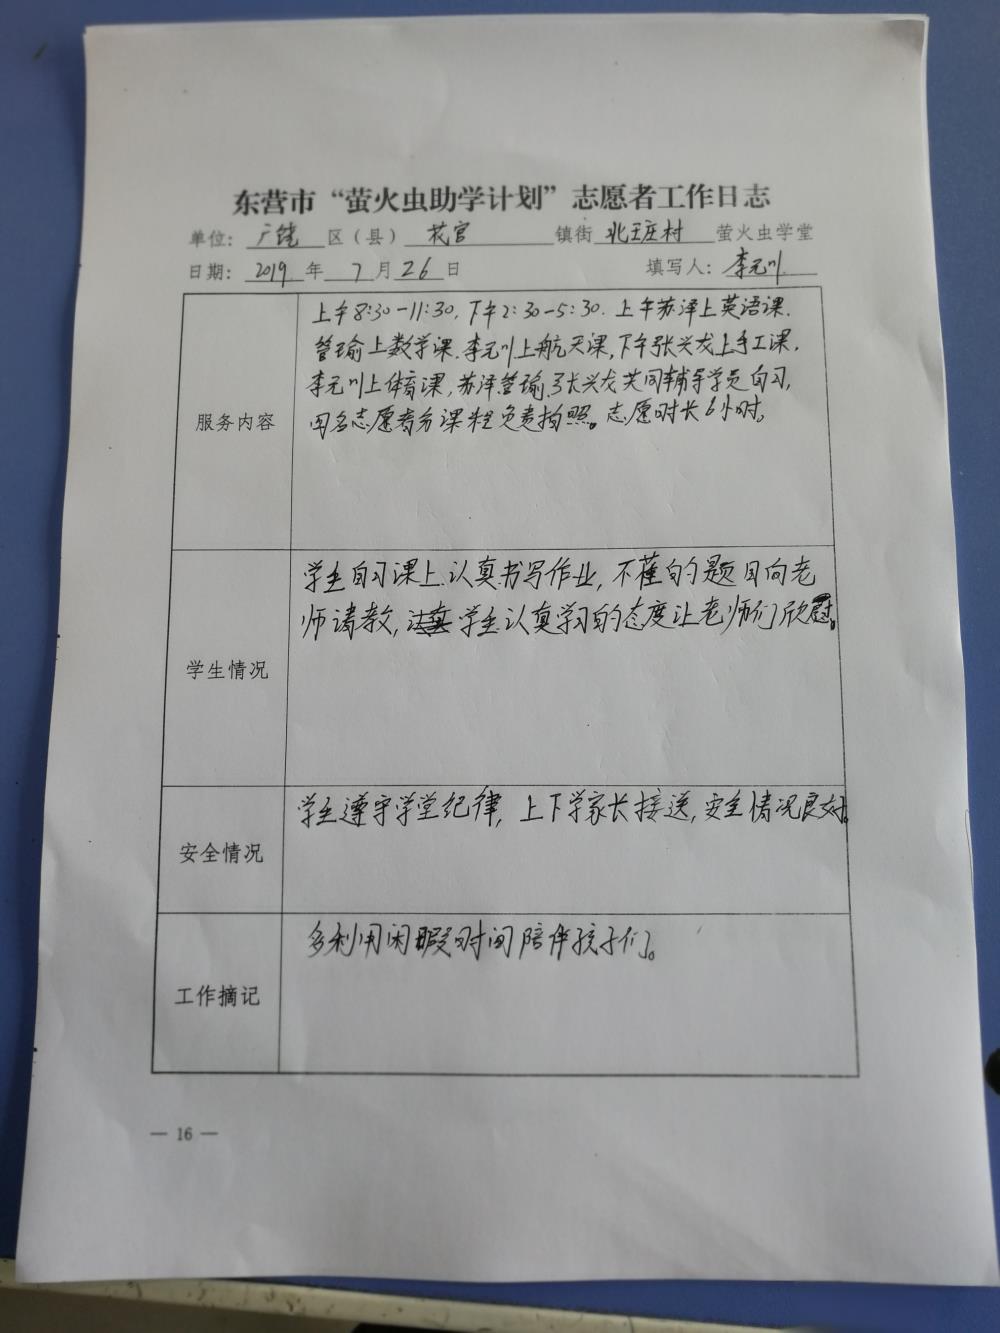 东营市“萤火虫助学计划”志愿者工作日志
单位：广饶 区（县） 花官 镇街 北王庄村 萤火虫学堂
日期：2019 年 7 月 26 日 填写人：李元川
服务内容
上午8:30-11:30,下午2:30-5:30.上午苏泽上英语课.
管瑜上数学课.李元川上航天课,下午张兴龙上手工课,
李元川上体育课,苏泽管瑜张兴龙共同辅导学员自习,
四名志愿者分课程负责拍照。志愿时长6小时。
学生情况
学生自习课上认真书写作业,不懂的题目向老
师请教,学生认真学习的态度让老师们欣慰。
安全情况
学生遵守学堂纪律,上下学家长接送,安全情况良好。
工作摘记
多利用闲暇时间陪伴孩子们。
— 16 —